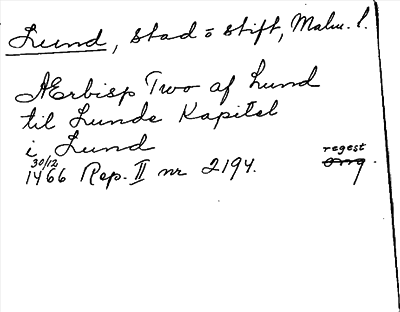 Lund, stad o stift, Malm. l.
Ærbisp Two af Lund
til Lunde Kapitel
i Lund
30/12 regest
1466 Rep. II nr 2194. omg.